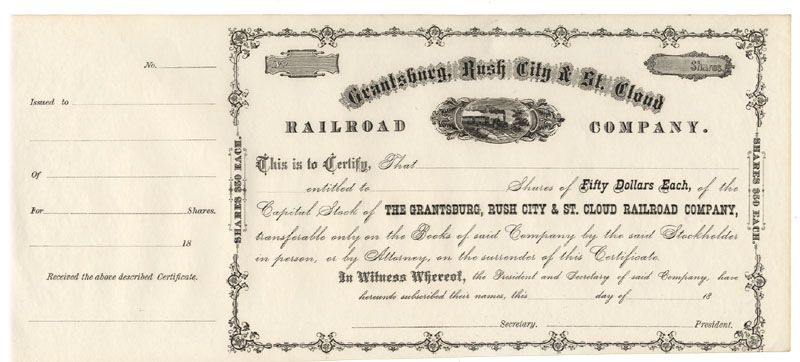 No.
Issued to
Of
For Shares.
18
Received the above described Certificate.
SHARES $50 EACH.
No.
Shares.
Grantsburg, Rush City & St. Cloud
RAILROAD COMPANY.
This is to Certify, That
entitled to Shares of Fifty Dollars Each, of the
Capital Stock of THE GRANTSBURG, RUSH CITY & ST. CLOUD RAILROAD COMPANY,
transferable only on the Books of said Company by the said Stockholder
in person, or by Attorney, on the surrender of this Certificate.
In Witness Whereof, the President and Secretary of said Company, have
hereunto subscribed their names, this day of 18
Secretary. President.
SHARES $50 EACH.